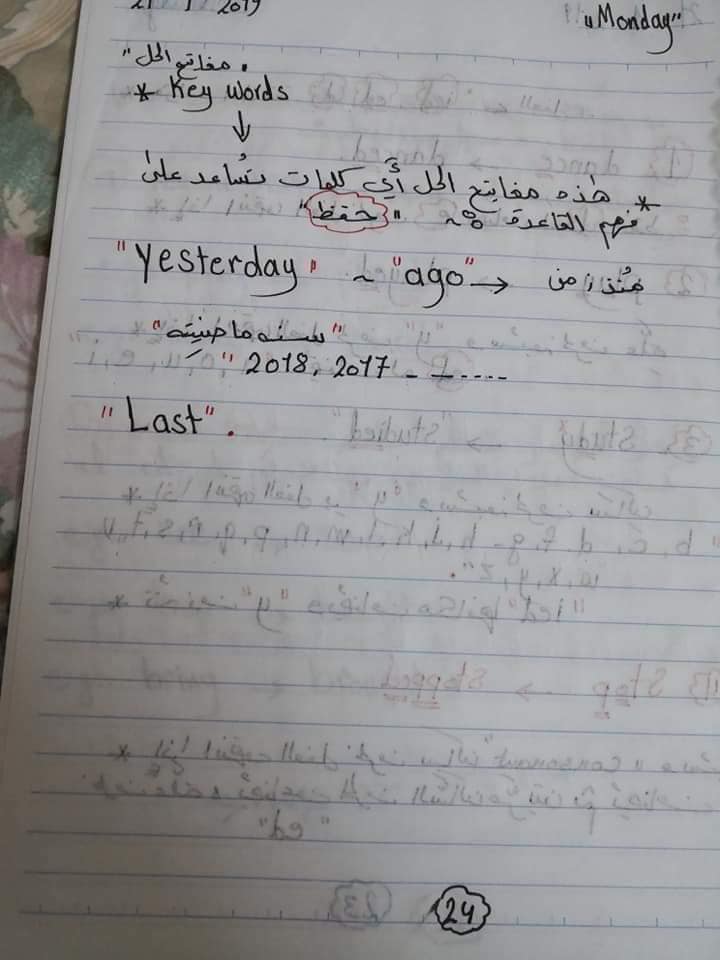 2019
"Monday"
"مفاتيح الحل".
* Key words
↓
* هذه مفاتيح الحل أي كلمات تساعد على
فهم القاعدة "حفظ"
"Yesterday" ~ "ago" → مُنذ / من
"سنه ماضيَِه"
" 2018, 2017 - - .....
"Last".
24